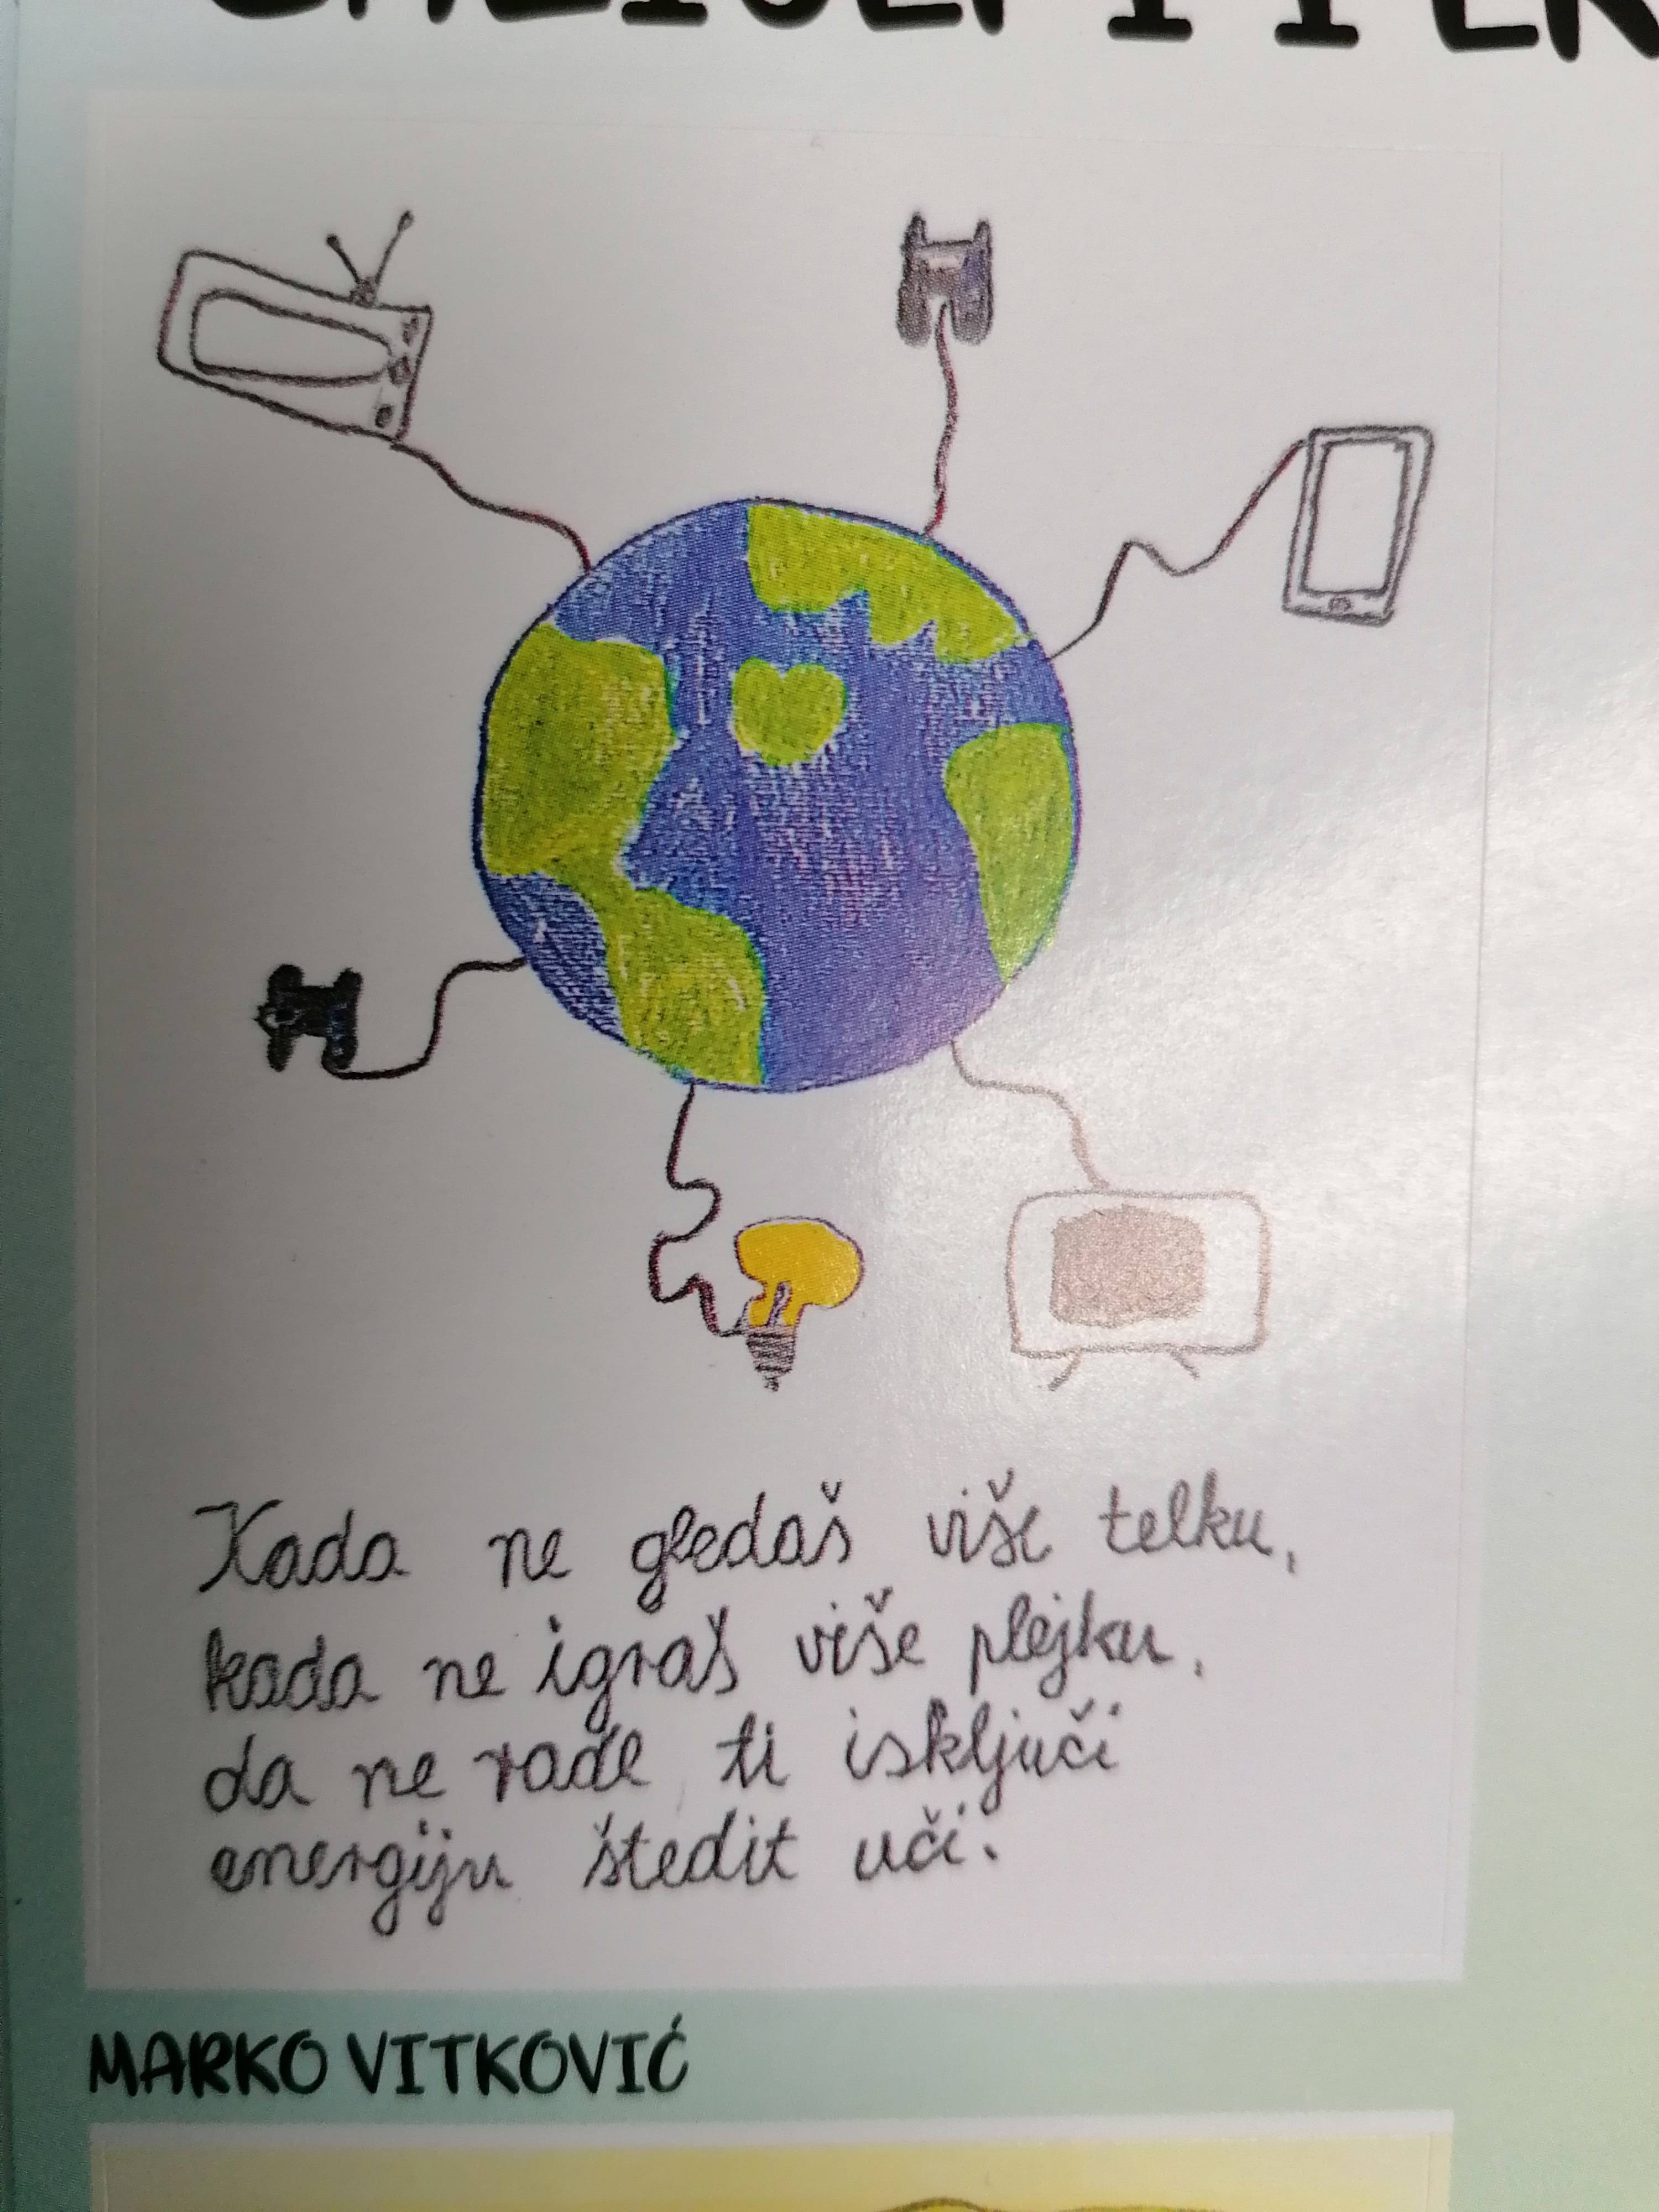 Kada ne gledaš više telku,
kada ne igraš više plejku,
da ne rade ti isključi
energiju štedit uči.
MARKO VITKOVIĆ